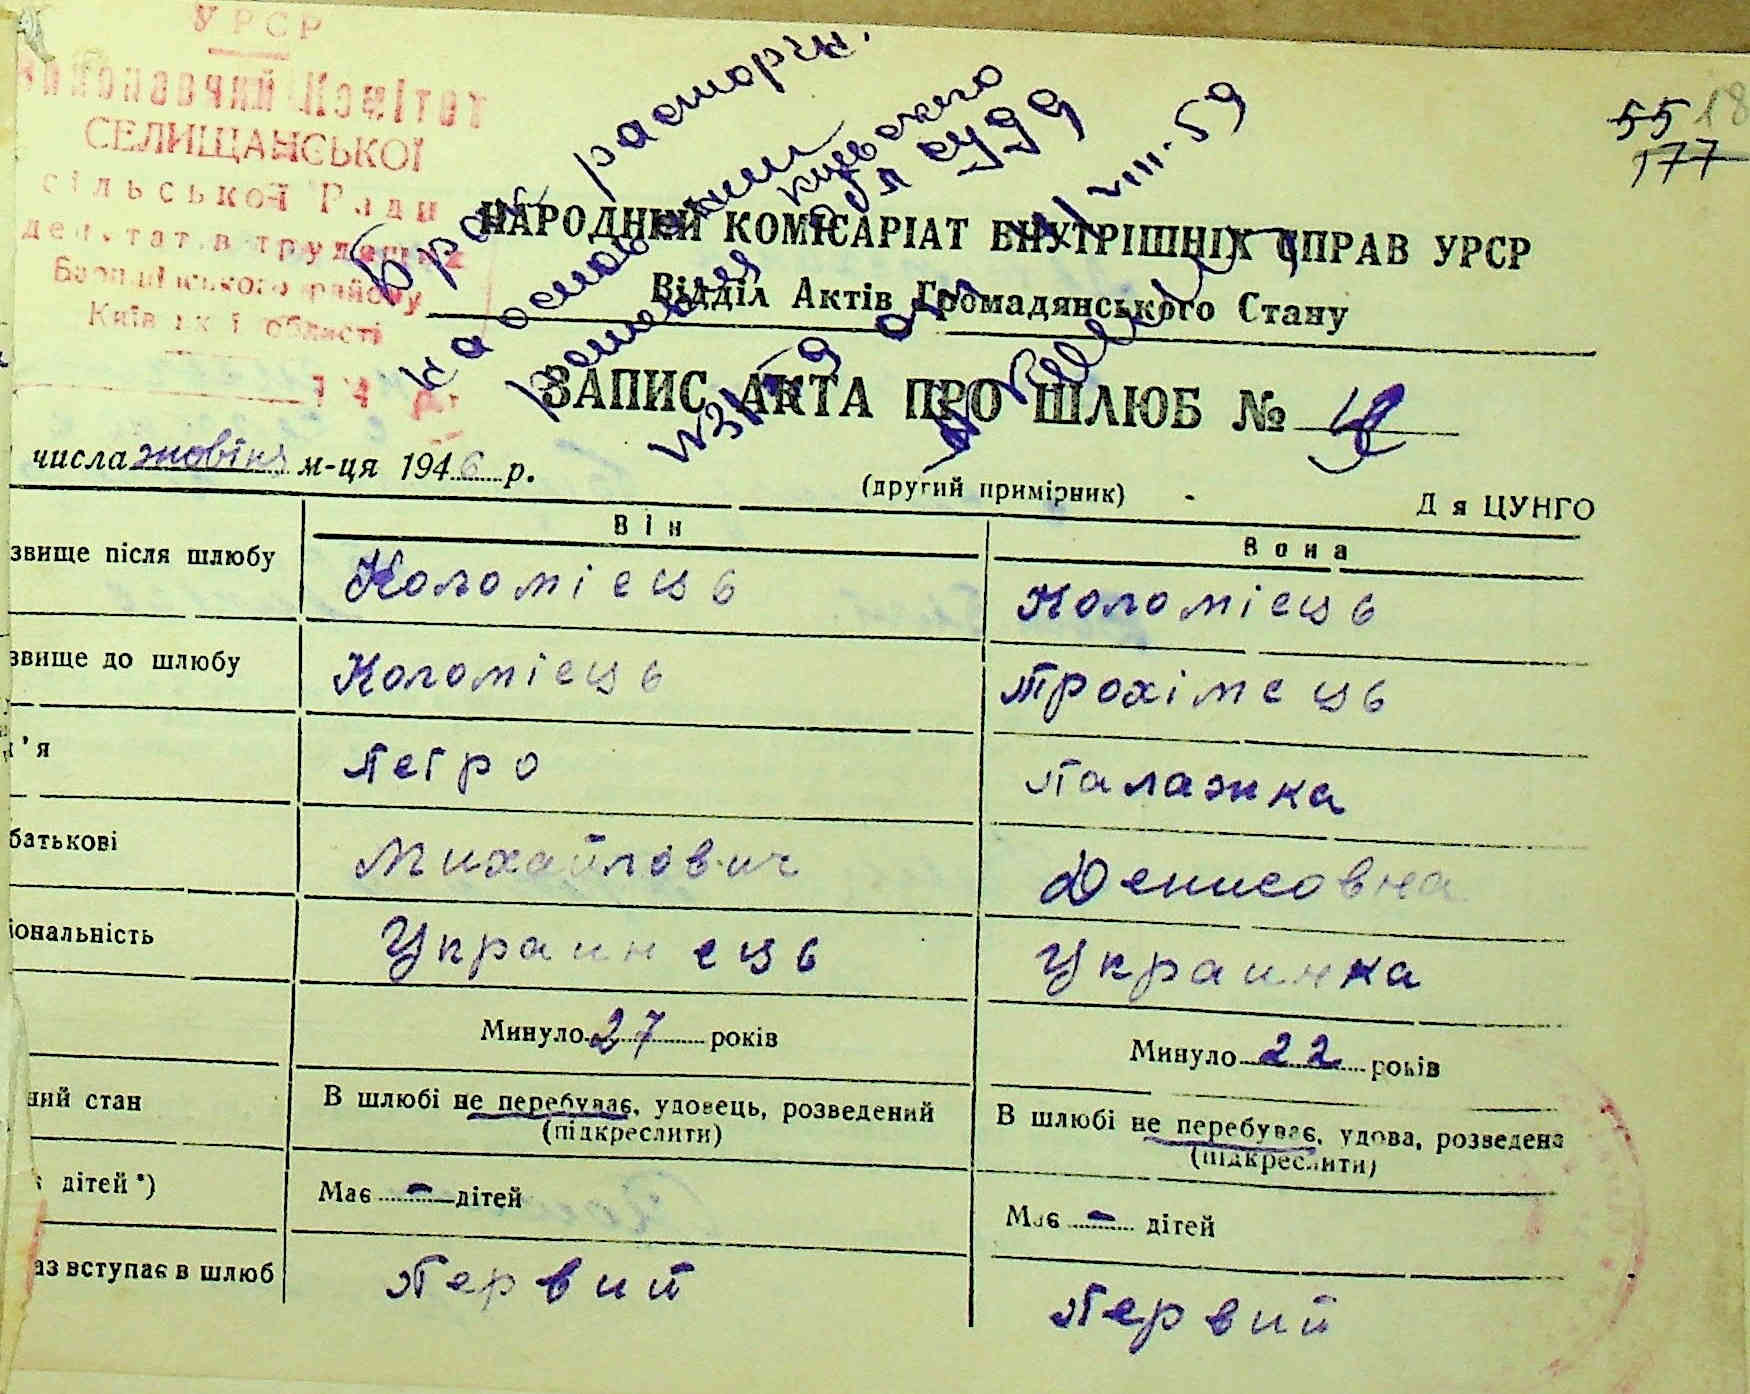 УРСР
Виконавчий Комітет
СЕЛИЩАНСЬКОЇ
сільської Ради
депутатів трудящих
Баришівського району
Київської області
Брак расторгн.
на основании
решения
№ 3179 от
VIII-59
55 18
177
НАРОДНИЙ КОМІСАРІАТ ВНУТРІШНІХ СПРАВ УРСР
Відділ Актів Громадянського Стану
ЗАПИС АКТА ПРО ШЛЮБ №
числа жовтня м-ця 1946 р.
(другий примірник)
Для ЦУНГО
Він Вона
звище після шлюбу Коломієць Коломієць
звище до шлюбу Коломієць Трохімець
'я Петро Палажка
батькові Михайлович Денисовна
іональність Украинець Украинка
Минуло 27 років Минуло 22 років
ний стан В шлюбі не перебуває, удовець, розведений В шлюбі не перебуває, удова, розведена
(підкреслити) (підкреслити)
дітей*) Має - дітей Має - дітей
аз вступає в шлюб Первий Первий